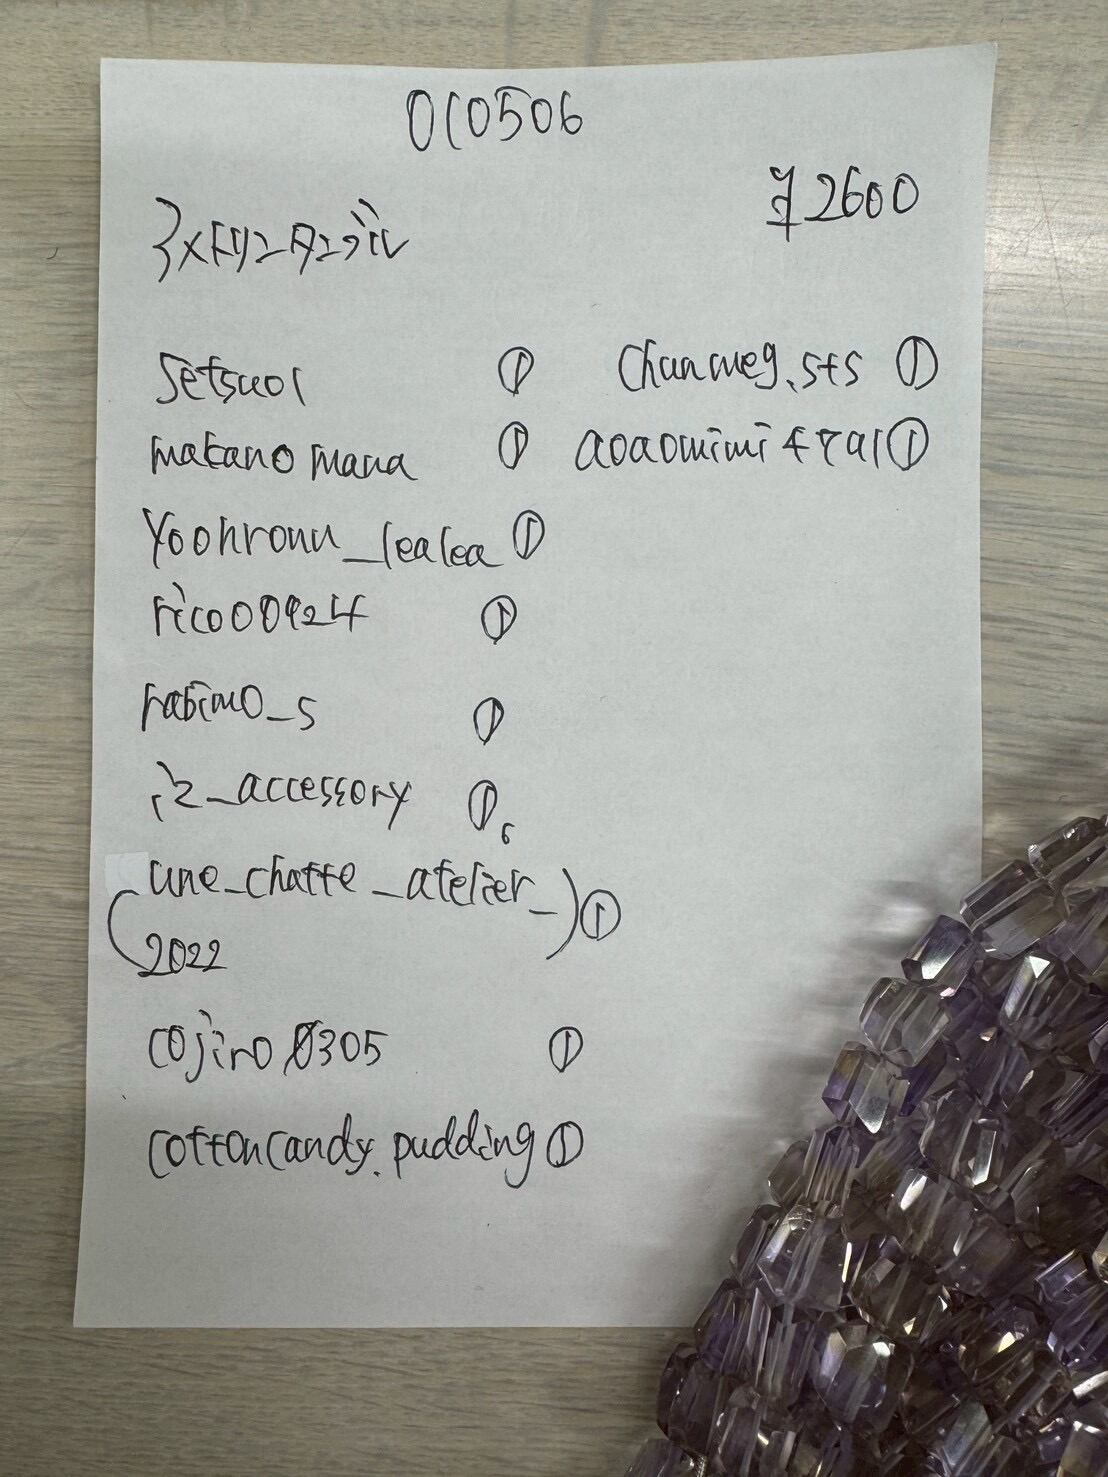 010506
¥2600
アメトリンタンブル
Setsuo1 ①
makanomana ①
yoohronu_lealea ①
rico00924 ①
rabimo_s ①
iz_accessory ①
une_chatte_atelier_ ①
2022
cojiro0305 ①
cottoncandy.pudding ①
chanmeg.sts ①
①